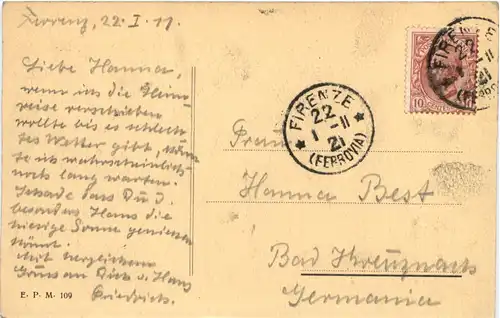 Firenz, 22. I. 11
Liebe Hanna,
wenn ich die Heim-
reise verschieben
wollte bis es schlech-
tes Wetter gibt, würde
ich wahrscheinlich
noch lang warten.
Schade dass Du u.
besonders Hans die
hiesige Sonne geniessen
könnt.
Mit herzlichem
Gruss an Dich u. Hans
Friedrich.
E. P. M. 109
FIRENZE
22
1 -11
21
(FERROVIA)
FIRENZE
22
1 -11
21
(FERROVIA)
10
Frau
Hanna Best
Bad Kreuznach
Germania